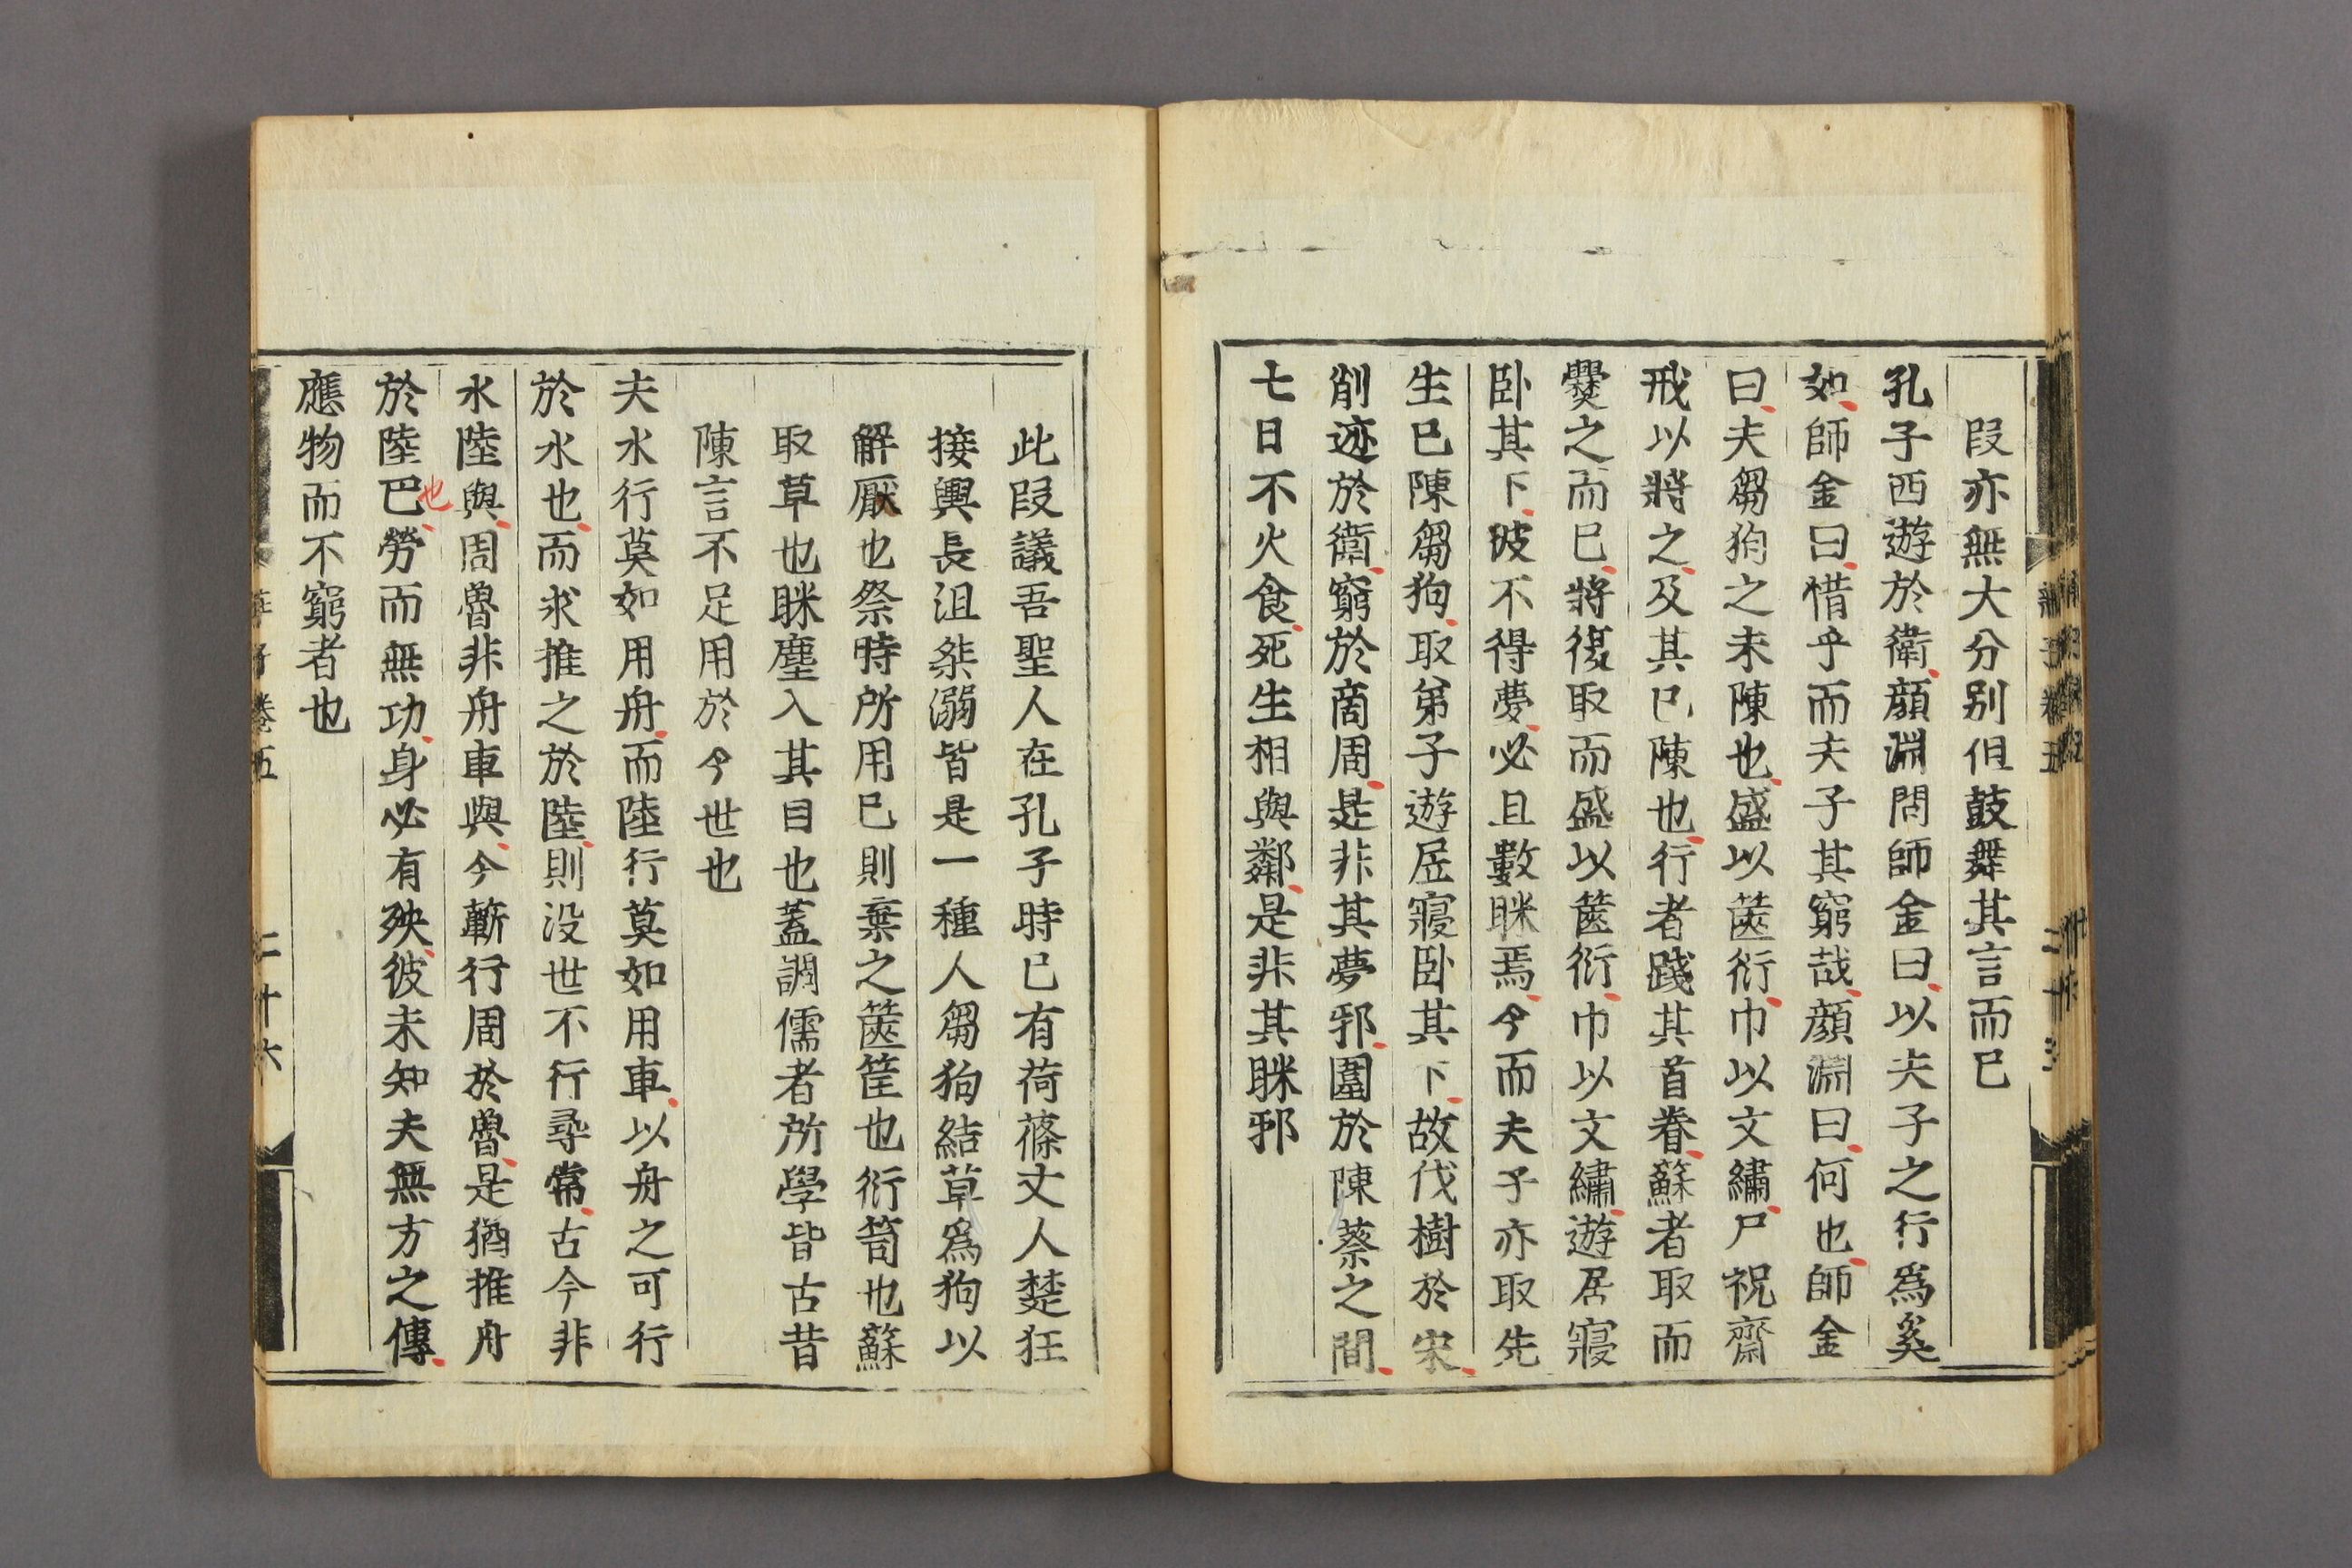 段亦無大分别但鼓舞其言而已
孔子西遊於衛顔淵問師金曰以夫子之行爲奚
如師金曰惜乎而夫子其窮哉顔淵曰何也師金
曰夫芻狗之未陳也盛以篋衍巾以文繡尸祝齋
戒以將之及其已陳也行者踐其首脊蘇者取而
爨之而已將復取而盛以篋衍巾以文繡遊居寢
卧其下彼不得夢必且數眯焉今而夫子亦取先
生已陳芻狗取弟子遊居寢卧其下故伐樹於宋
削迹於衛窮於商周是非其夢邪圍於陳蔡之間
七日不火食死生相與鄰是非其眯邪
此段議吾聖人在孔子時已有荷蓧丈人楚狂
接輿長沮桀溺皆是一種人芻狗結草爲狗以
解厭也祭時所用已則棄之篋筐也衍笥也蘇
取草也眯塵入其目也蓋謂儒者所學皆古昔
陳言不足用於今世也
夫水行莫如用舟而陸行莫如用車以舟之可行
於水也而求推之於陸則没世不行尋常古今非
水陸與周魯非舟車與今蘄行周於魯是猶推舟
於陸巴勞而無功身必有殃彼未知夫無方之傳
也
應物而不窮者也
莊子卷五
二十六